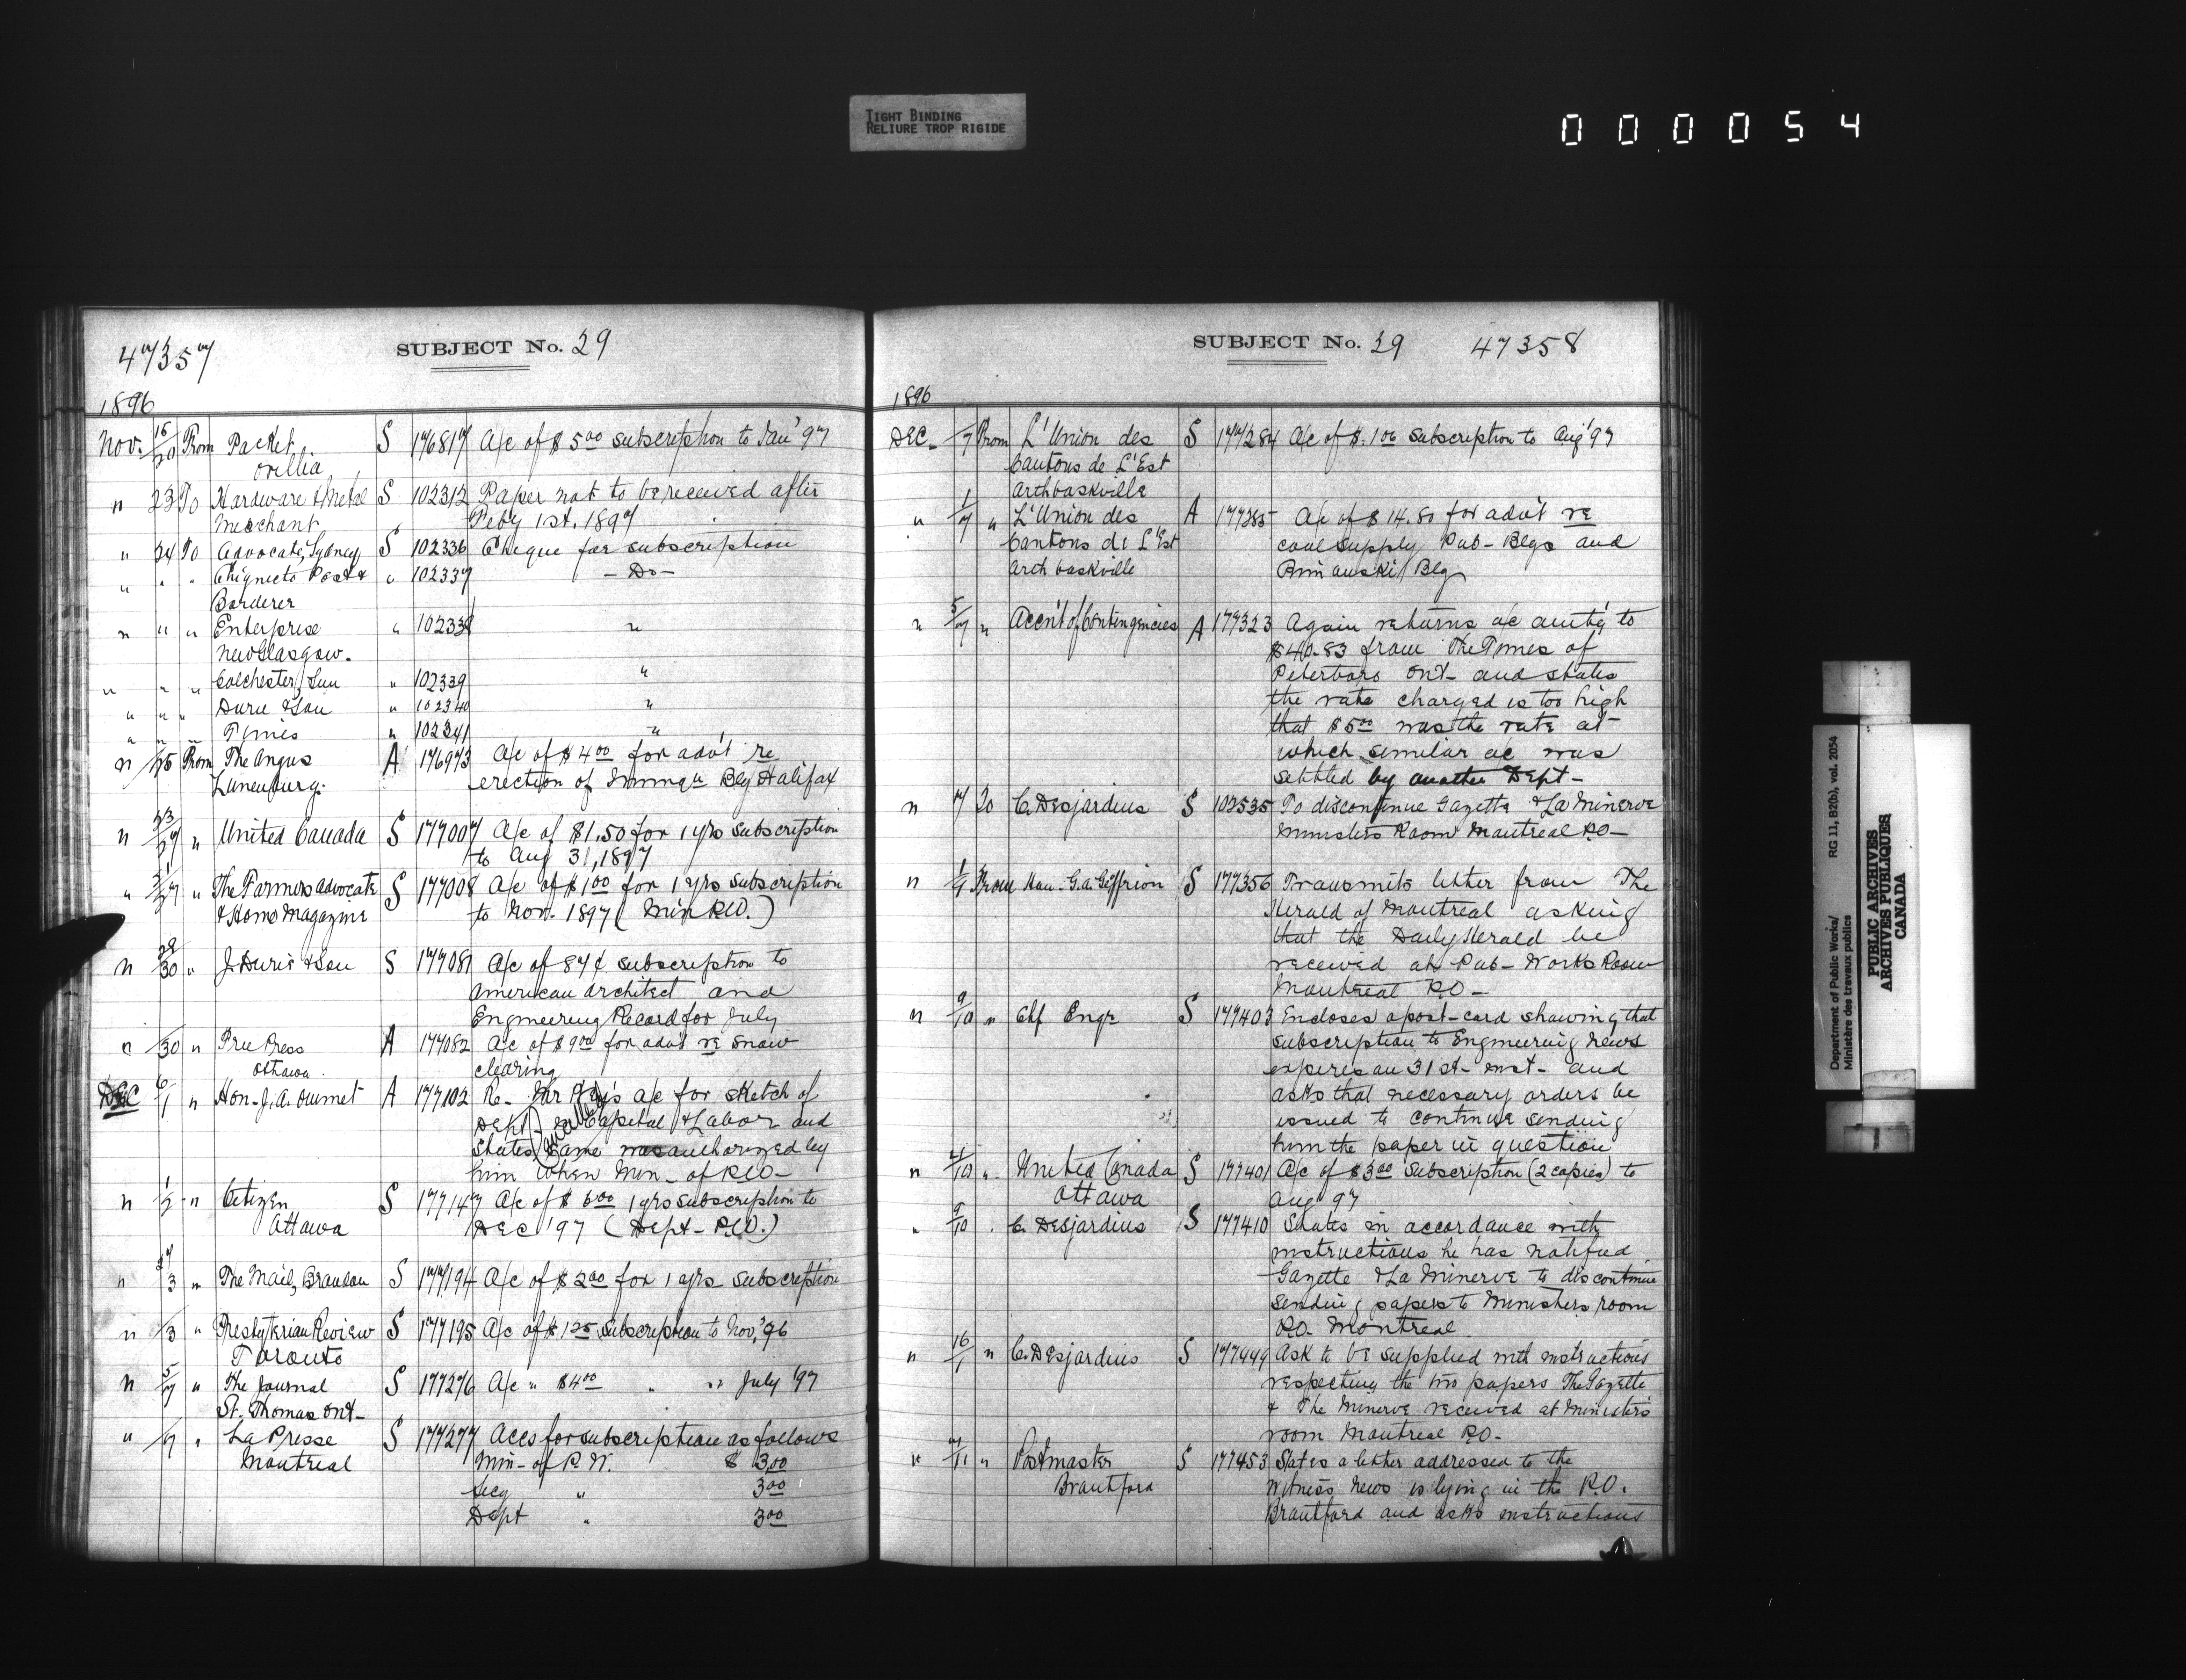 TIGHT BINDING
RELIURE TROP RIGIDE
0 0 0 0 5 4
47357
SUBJECT No. 29
1896
Nov. 15/20 From Packet, S 176817 A/c of $5.00 subscription to Jan' 97
Orillia
" 23 To Hardware & Metal S 102312 Paper not to be received after
Merchant Feby 1st. 1897
" 24 To Advocate, Sydney S 102336 Cheque for subscription
" " " Chignecto Post & " 102337 - Do -
Borderer
" " " Enterprise " 102338 "
New Glasgow.
" " " Colchester Sun " 102339 "
" " " Durie & Son " 102340 "
" " " Times " 102341 "
" /25 From The Argus A 176973 A/c of $4.00 for advt re
Lunenburg. erection of Bldg Halifax
" 23/27 " United Canada S 177007 A/c of $1.50 for 1 yrs subscription
to Aug 31, 1897
" /27 " The Farmers Advocate S 177008 A/c of $1.00 for 1 yrs subscription
& Home Magazine to Nov. 1897 (Min P.W.)
" 28/30 " J. Durie & Son S 177081 A/c of 87¢ subscription to
American Architect and
Engineering Record for July
" /30 " Free Press A 177082 A/c of $9.00 for advt re snow
Ottawa. clearing
DEC /1 " Hon. J. A. Ouimet A 177102 Re. Mr a/c for sketch of
Dept. in Capital & Labor and
States same was authorized by
him when Min. of P.W.
" 1/2 " Citizen S 177147 A/c of $6.00 1 yrs subscription to
Ottawa DEC '97 (Dept. P.W.)
" 27/3 " The Mail, Brandon S 177194 A/c of $2.00 for 1 yrs subscription
" /3 " Presbyterian Review S 177195 A/c of $1.25 subscription to Nov. '96
Toronto
" 5/7 " The Journal S 177276 A/c " $4.00 " " July '97
St. Thomas Ont.
" /7 " La Presse S 177277 Accs for subscription as follows
Montreal Min- of P.W. $ 3.00
Secy " 3.00
Dept " 3.00
SUBJECT No. 29 47358
1896
DEC. /7 From L'Union des S 177284 A/c of $1.00 subscription to Aug' 97
Cantons de L'Est
Arthbaskville
" 1/7 " L'Union des A 177285 A/c of $14.80 for advt re
Cantons de L'Est coal supply Pub- Blgs and
Arthbaskville Rimouski Blg
" 5/7 " Acc'nt of Contingencies A 177323 Again returns a/c amtg to
$40.83 from The Times of
Peterboro Ont- and states
the rate charged is too high
that $5.00 was the rate at
which similar a/c was
settled by another Dept-
" 7 To C. Desjardins S 102535 To discontinue Gazette & La Minerve
Ministers Room Montreal P.O-
" 1/9 From Hon. G. A. Geoffrion S 177356 Transmits letter from The
Herald of Montreal asking
that the Daily Herald be
received at Pub- Works Room
Montreal P.O-
" 9/10 " Chf Engr S 177403 Encloses a post-card showing that
subscription to Engineering News
expires on 31st- inst- and
asks that necessary orders be
issued to continue sending
him the paper in question
" /10 " United Canada S 177401 A/c of $3.00 subscription (2 copies) to
Ottawa Aug 97
" 9/10 " C. Desjardins S 177410 States in accordance with
instructions he has notified
Gazette & La Minerve to discontinue
sending papers to Ministers room
P.O. Montreal
" C. Desjardins S 177449 Ask to be supplied with instructions
respecting the two papers The Gazette
& The Minerve received at Ministers
room Montreal P.O-
" /11 " Postmaster S 177453 States a letter addressed to the
Brantford Witness News is lying in the P.O.
Brantford and asks instructions
Department of Public Works/ RG 11, B2(b), vol. 2054
Ministère des travaux publics
PUBLIC ARCHIVES
ARCHIVES PUBLIQUES
CANADA